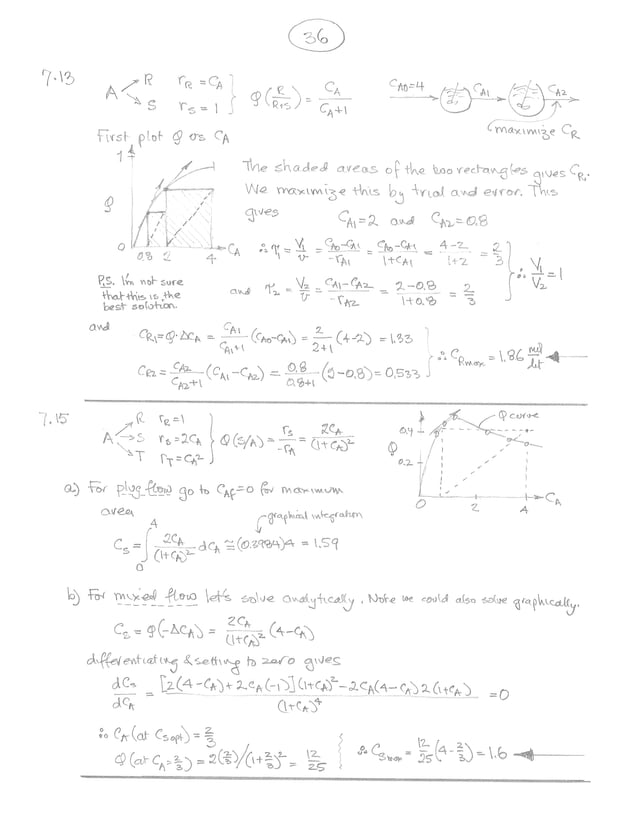 36
7.13
A → R r_R = C_A
→ S r_S = 1
φ(R/(R+S)) = C_A/(C_A+1)
C_A0=4 C_A1 C_A2
maximize C_R
First plot φ vs C_A
1
φ
0 0.8 2 4 C_A
The shaded areas of the two rectangles gives C_R.
We maximize this by trial and error. This
gives C_A1=2 and C_A2=0.8
∴ τ1 = V1/v = (C_A0-C_A1)/-r_A1 = (C_A0-C_A1)/(1+C_A1) = (4-2)/(1+2) = 2/3
and τ2 = V2/v = (C_A1-C_A2)/-r_A2 = (2-0.8)/(1+0.8) = 2/3
∴ V1/V2 = 1
P.S. I'm not sure
that this is the
best solution.
and
C_R1 = φ·ΔC_A = C_A1/(C_A1+1) (C_A0-C_A1) = 2/(2+1) (4-2) = 1.33
C_R2 = C_A2/(C_A2+1) (C_A1-C_A2) = 0.8/(0.8+1) (2-0.8) = 0.533
∴ C_Rmax = 1.86 mol/lit
7.15
A → R r_R=1
→ S r_S=2C_A
→ T r_T=C_A²
φ(S/A) = r_S/-r_A = 2C_A/(1+C_A)²
φ curve
0.4
φ
0.2
0 2 4 C_A
a) For plug flow go to C_Af=0 for maximum
area
graphical integration
C_S = ∫₀⁴ 2C_A/(1+C_A)² dC_A ≅ (0.3984)4 = 1.59
b) For mixed flow let's solve analytically. Note we could also solve graphically.
C_S = φ(-ΔC_A) = 2C_A/(1+C_A)² (4-C_A)
differentiating & setting to zero gives
dC_S/dC_A = ([2(4-C_A)+2C_A(-1)](1+C_A)²-2C_A(4-C_A)2(1+C_A))/(1+C_A)⁴ = 0
∴ C_A (at C_S opt) = 2/3
φ (at C_A=2/3) = 2(2/3)/(1+2/3)² = 12/25
∴ C_Smax = 12/25 (4-2/3) = 1.6